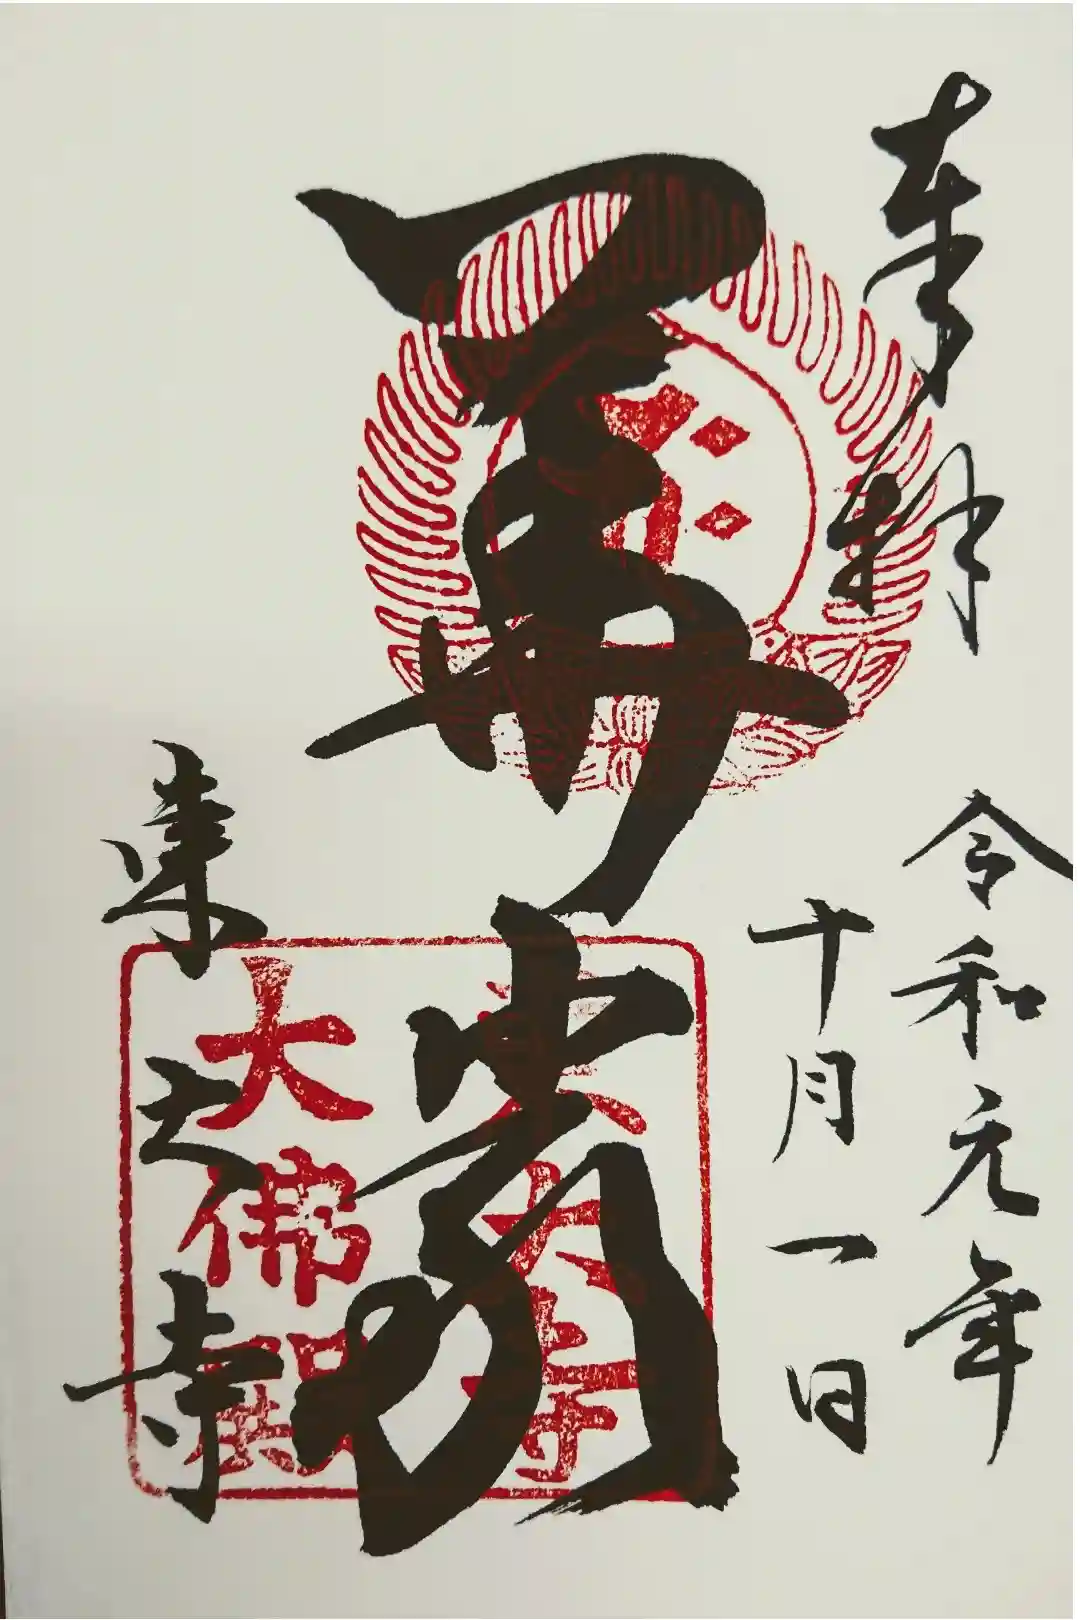 奉拝
令和元年
十月一日
華厳
東大寺
東大寺
大佛殿